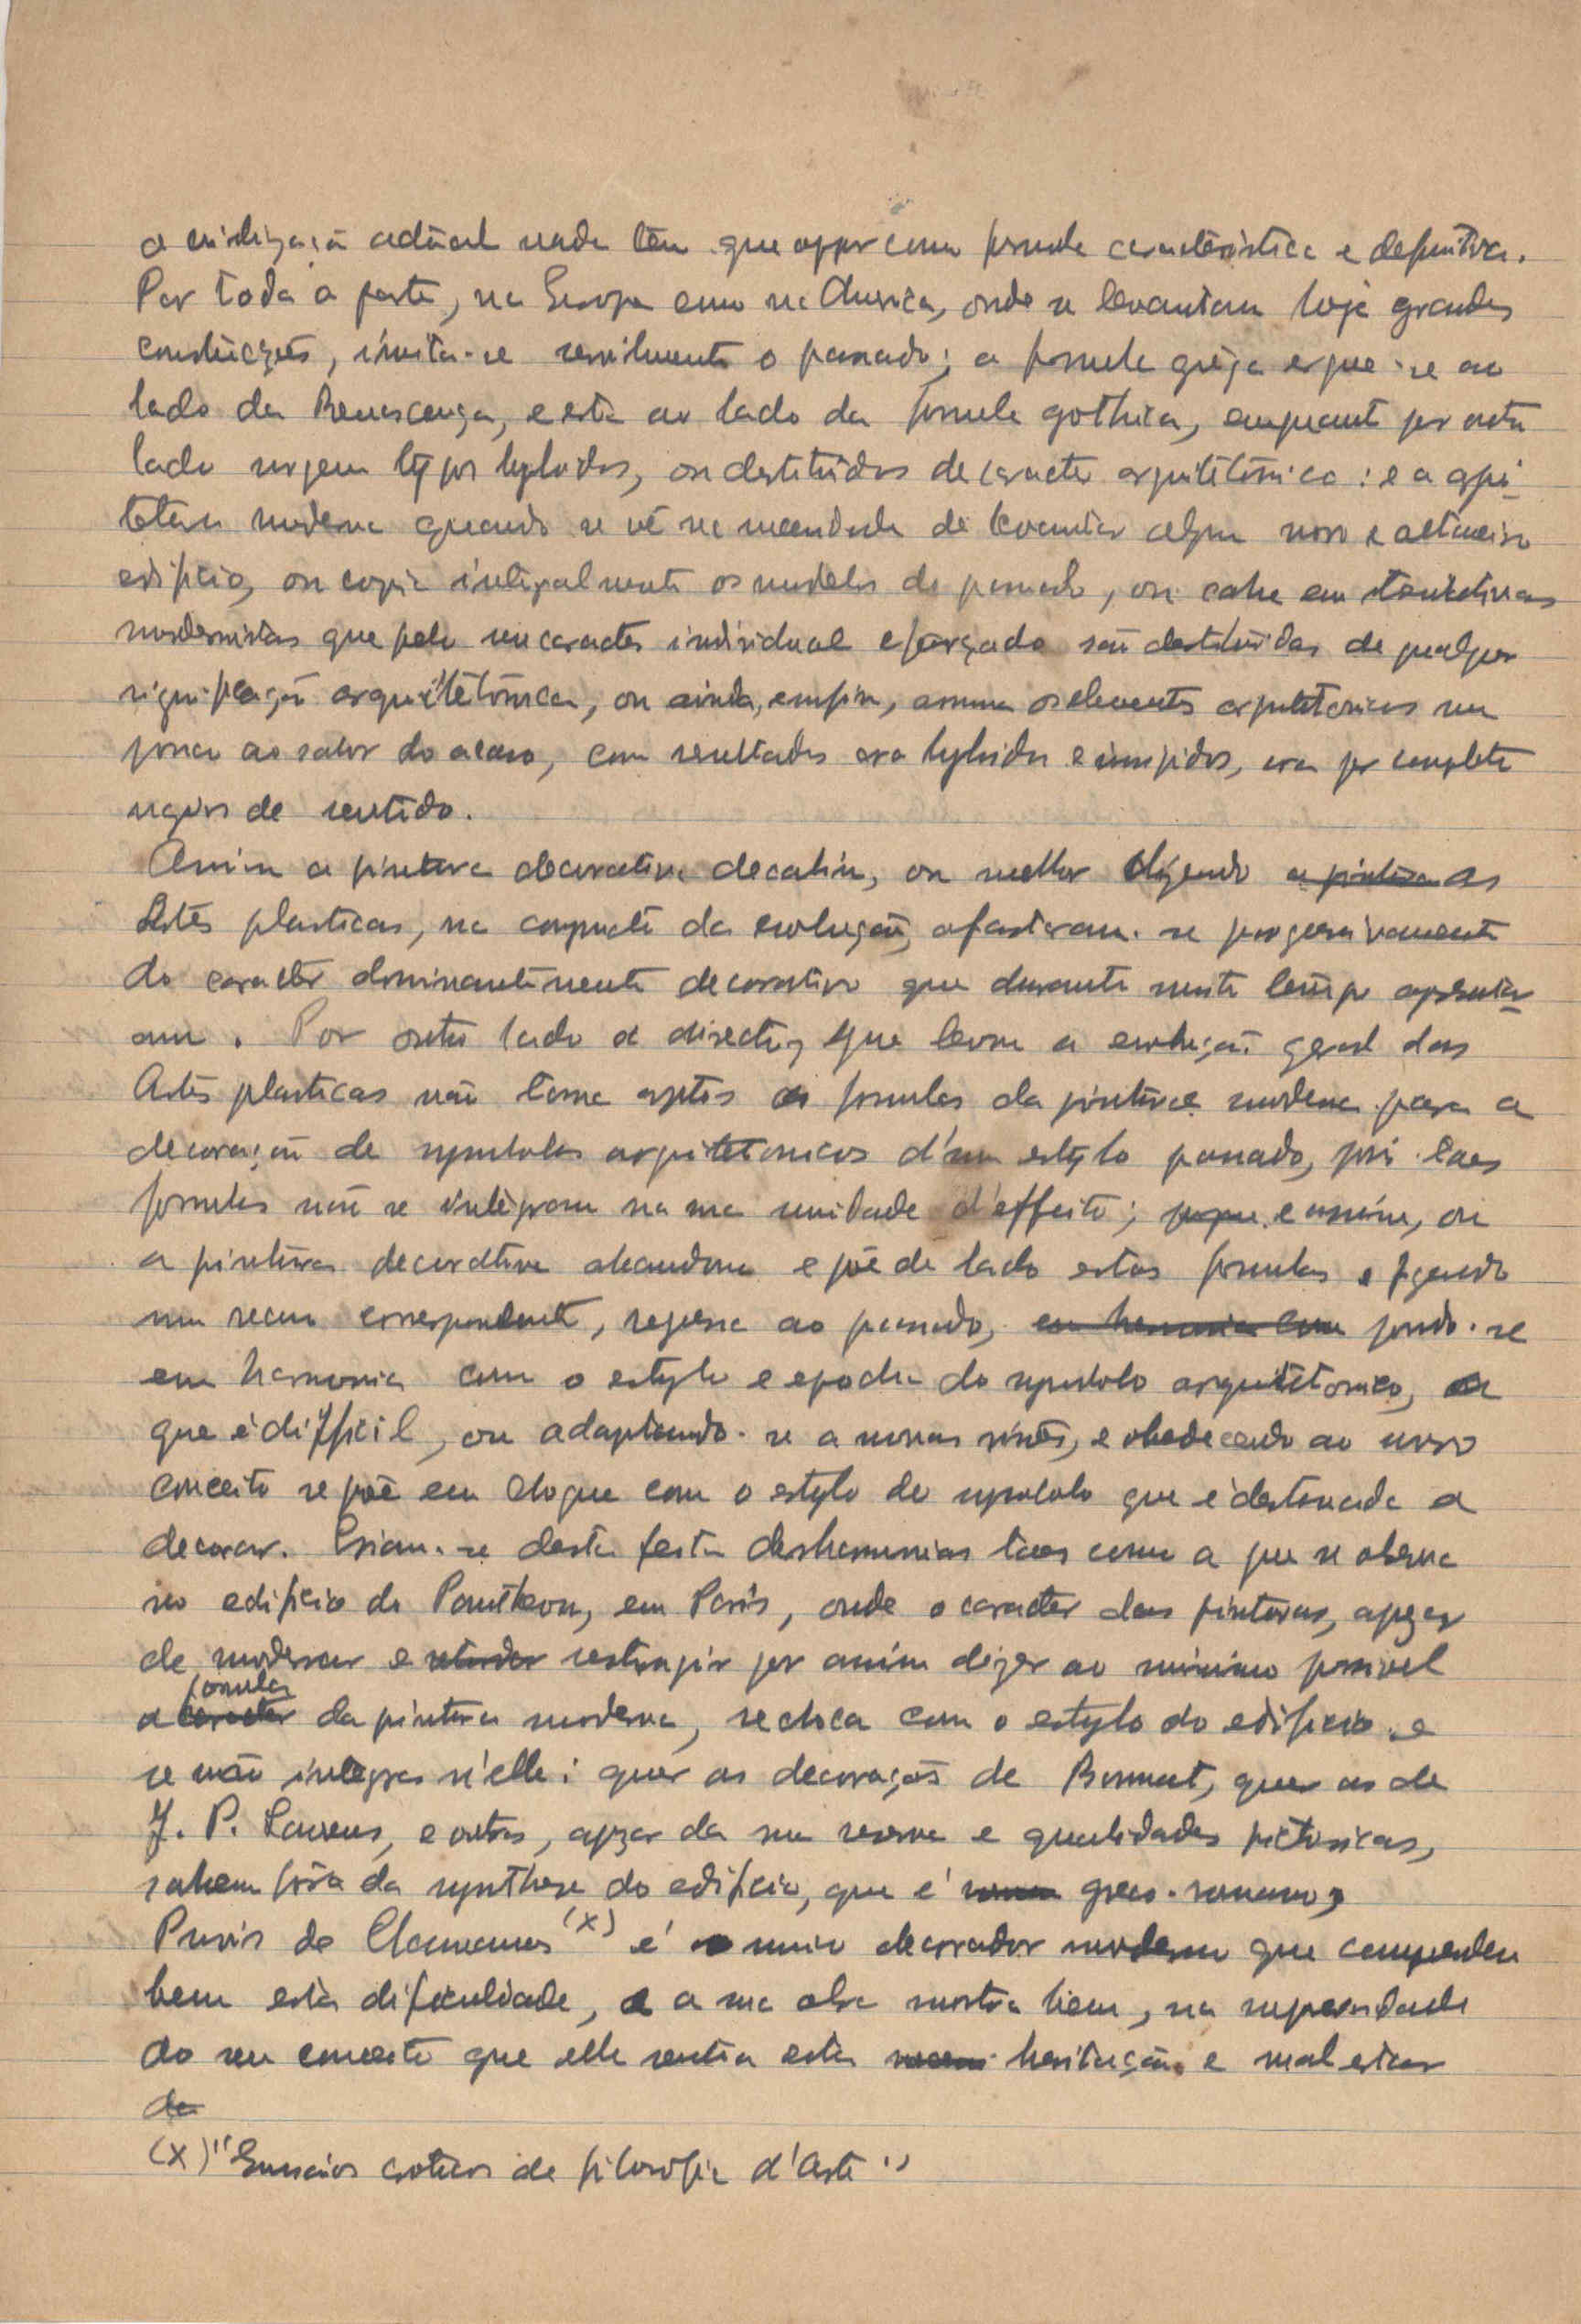 a civilização actual nada tem que oppor como formula caracteristica e definitiva.
Por toda a parte, na Europa como na America, onde se levantam hoje grandes
construcções, imita-se servilmente o passado; a formula grega ergue-se ao
lado da Renascença, e esta ao lado da formula gothica, emquanto por outro
lado surgem typos hybridos, ou destituidos de caracter arquitetónico: e a arqui-
tetura moderna quando se vê na necessidade de levantar algum novo e altaneiro
edificio, ou copia integralmente os modelos do passado, ou cahe em tentativas
modernistas que pelo seu caracter individual e forçado são destituidas de qualquer
significação arquitetónica, ou ainda, emfim, arruma os elementos arquitetonicos um
pouco ao sabor do acaso, com resultados ora hybridos e insipidos, ora por completo
vazios de sentido.
Assim a pintura decorativa decahiu, ou melhor dizendo a pintura as
Artes plasticas, na conquista da evolução, afastaram-se progressivamente
do caracter dominantemente decorativo que durante muito tempo apresenta-
am. Por outro lado a directriz que levou a evolução geral das
Artes plasticas não torna aptas as formulas da pintura moderna para a
decoração de symbolos arquitetonicos d'um estylo passado, pois taes
formulas não se integram na sua unidade d'effeito; porque e assim, ou
a pintura decorativa abandona e põe de lado estas formulas e fazendo
um recuo correspondente, regressa ao passado, em harmonia com pondo-se
em harmonia com o estylo e epocha do symbolo arquitetonico, o
que é difficil, ou adaptando-se a novas visões, e obedecendo ao novo
conceito se põe em choque com o estylo do symbolo que é destinada a
decorar. Criam-se desta feita desharmonias taes como a que se observa
no edificio do Pantheon, em Paris, onde o caracter das pinturas, apezar
de moderar e restringir por assim dizer ao minimo possivel
a caracter formula da pintura moderna, se choca com o estylo do edificio e
se não integra n'elle: quer as decorações de Bonnat, quer as de
J. P. Laurens, e outros, apezar da sua reserva e qualidades pictoricas,
sahem fóra da synthese do edificio, que é greco-romano,
Puvis de Chavannes (x) é o unico decorador moderno que comprendeu
bem esta dificuldade, e a sua obra mostra bem, na superioridade
do seu conceito que elle sentia esta hesitação e mal estar
de
(x) "Ensaios criticos de filosofia d'Arte"